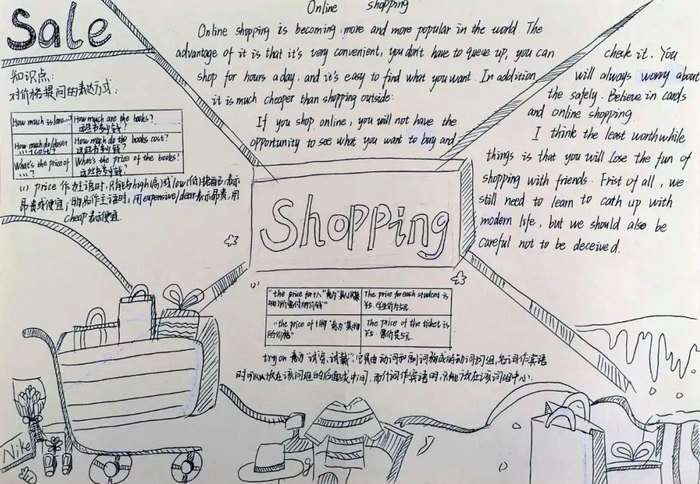 Sale
Online shopping
Online shopping is becoming more and more popular in the world. The
advantage of it is that it's very convenient, you don't have to queue up, you can
shop for hours a day, and it's easy to find what you want. In addition,
it is much cheaper than shopping outside.
If you shop online, you will not have the
opportunity to see what you want to buy and
check it. You
will always worry about
the safely. Believe in cards
and online shopping
I think the least worthwhile
things is that you will lose the fun of
shopping with friends. Frist of all, we
still need to learn to cath up with
modern life, but we should also be
careful not to be deceived.
知识点:
对价格提问的表达方式:
How much is/are...? How much are the books?
这些书多少钱?
How much do/does ... cost? How much do the books cost?
这些书多少钱?
What's the price of ...? What's the price of the books?
这些书多少钱?
(1) price 作主语时,只能与high(高)或low(低)搭配表示
昂贵或便宜;物品作主语时,用expensive/dear表示昂贵,用
cheap表示便宜
Shopping
(2)
"the price for + 人" The price for each student is
¥5.
"the price of + 物" The price of the ticket is
的价格" ¥5. 票价是5元.
try on 意为"试穿,试戴",它是由动词和副词构成的动词词组,名词作宾语
时可以放在该词组的后面或中间,而代词作宾语时,只能放在该词组中心.
Nike